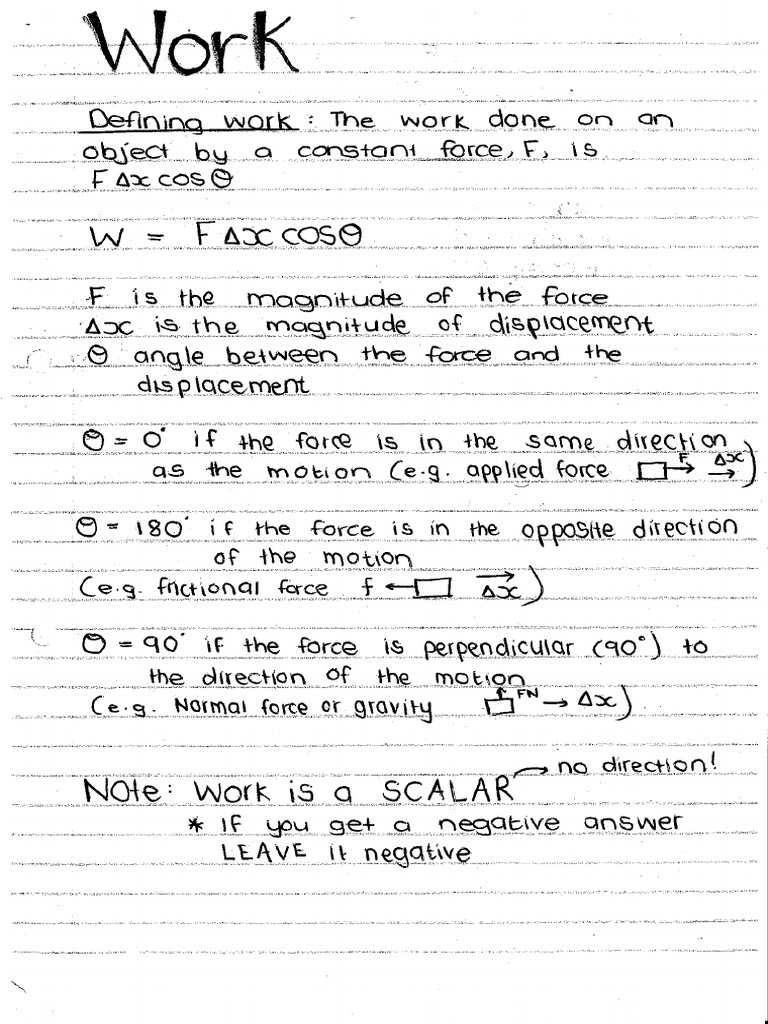 Work
Defining work : The work done on an
object by a constant force, F, is
F Δx cos θ
W = F Δx cos θ
F is the magnitude of the force
Δx is the magnitude of displacement
θ angle between the force and the
displacement
θ = 0° if the force is in the same direction
as the motion (e.g. applied force F Δx)
θ = 180° if the force is in the opposite direction
of the motion
(e.g. frictional force f Δx)
θ = 90° if the force is perpendicular (90°) to
the direction of the motion
(e.g. Normal force or gravity FN → Δx)
Note: Work is a SCALAR → no direction!
* If you get a negative answer
LEAVE it negative